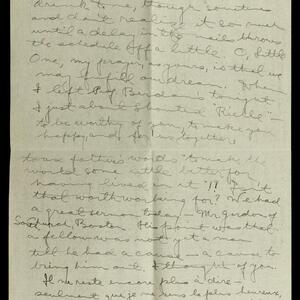 drink to me, though sometimes
and don't realize it so much
until a delay in the mails throws
the schedule off a little. O, little
One, my prayer, as yours, is that we
may fulfill our dream. When
I left Prof tonight
I just about shouted
to be worthy of you, to make you
happy, and for us together
to use father's words "to make the
world some little better for
having lived in it"!? Isn't
that worth working for? We had
a great sermon today – Mr Gordon of
So Church, Boston. His point was that
a fellow was not yet a man
till he had a cause – a cause to
bring him out. I thought of you.
Il ne reste encore plus à dire –
seulement que je suis le plus heureux,